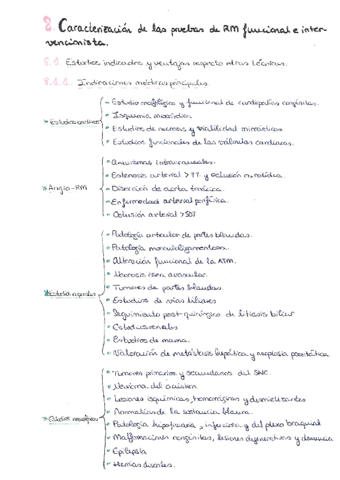 8. Caracterización de las pruebas de RM funcional e inter-
vencionista.
8.1 Estudios indicados y ventajas respecto otras técnicas.
8.1.1. Indicaciones médicas principales.
- Estudio morfológico y funcional de cardiopatías congénitas.
- Isquemia miocárdica
- Estudios de necrosis y viabilidad miocárdicas
- Estudios funcionales de las válvulas cardiacas.
Estudios cardiacos
- Aneurismas intracraneales.
- Estenosis arterial > 77 y oclusión carotídea.
Angio-RM
- Disección de aorta torácica
- Enfermedad arterial periférica.
- Oclusión arterial >
- Patología articular de partes blandas.
- Patología musculoligamentosa.
- Alteración funcional de la ATM.
- Necrosis ósea avascular.
- Tumores de partes blandas
- Estudios de vías biliares
- Seguimiento post-quirúrgico de litiasis biliar
- Estudios de mama.
- Valoración de metástasis hepática y neoplasia prostática.
- Tumores primarios y secundarios del SNC.
- Neurinoma del acústico
- Lesiones isquémicas, hemorrágicas y desmielizantes
- Anomalías de la sustancia blanca.
Estudios neurológicos
- Patología hipofisaria, infecciosa y del plexo braquial
- Malformaciones congénitas, lesiones degenerativas y demencia
- Epilepsia
- Hernias discales.